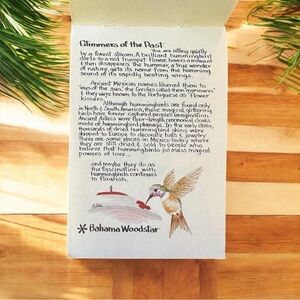 Glimmers of the Past
You are sitting quietly
by a forest stream. A brilliant hummingbird
darts to a red trumpet flower, hovers a moment
& then disappears. The hummer, a true wonder
of nature, gets its name from the humming
sound of its rapidly beating wings.
Ancient Mexican names likened them to
"rays of the sun," the Creoles called them "murmurers"
& they were known to the Portuguese as "flower
kissers."
Although hummingbirds are found only
in North & South America, these magical, glittering
birds have forever captured people's imagination.
Ancient Aztecs wore floor-length ceremonial cloaks
made of hummingbird plumage. In the early 1800s,
thousands of dried hummingbird skins were
shipped to Europe to decorate hats & jewelry.
There are some places in Mexico today where
they are still dried & sold to people who
believe that hummingbirds possess magical
powers of love...
and maybe they do as
the fascination with
hummingbirds continues
to flourish.
* Bahama Woodstar